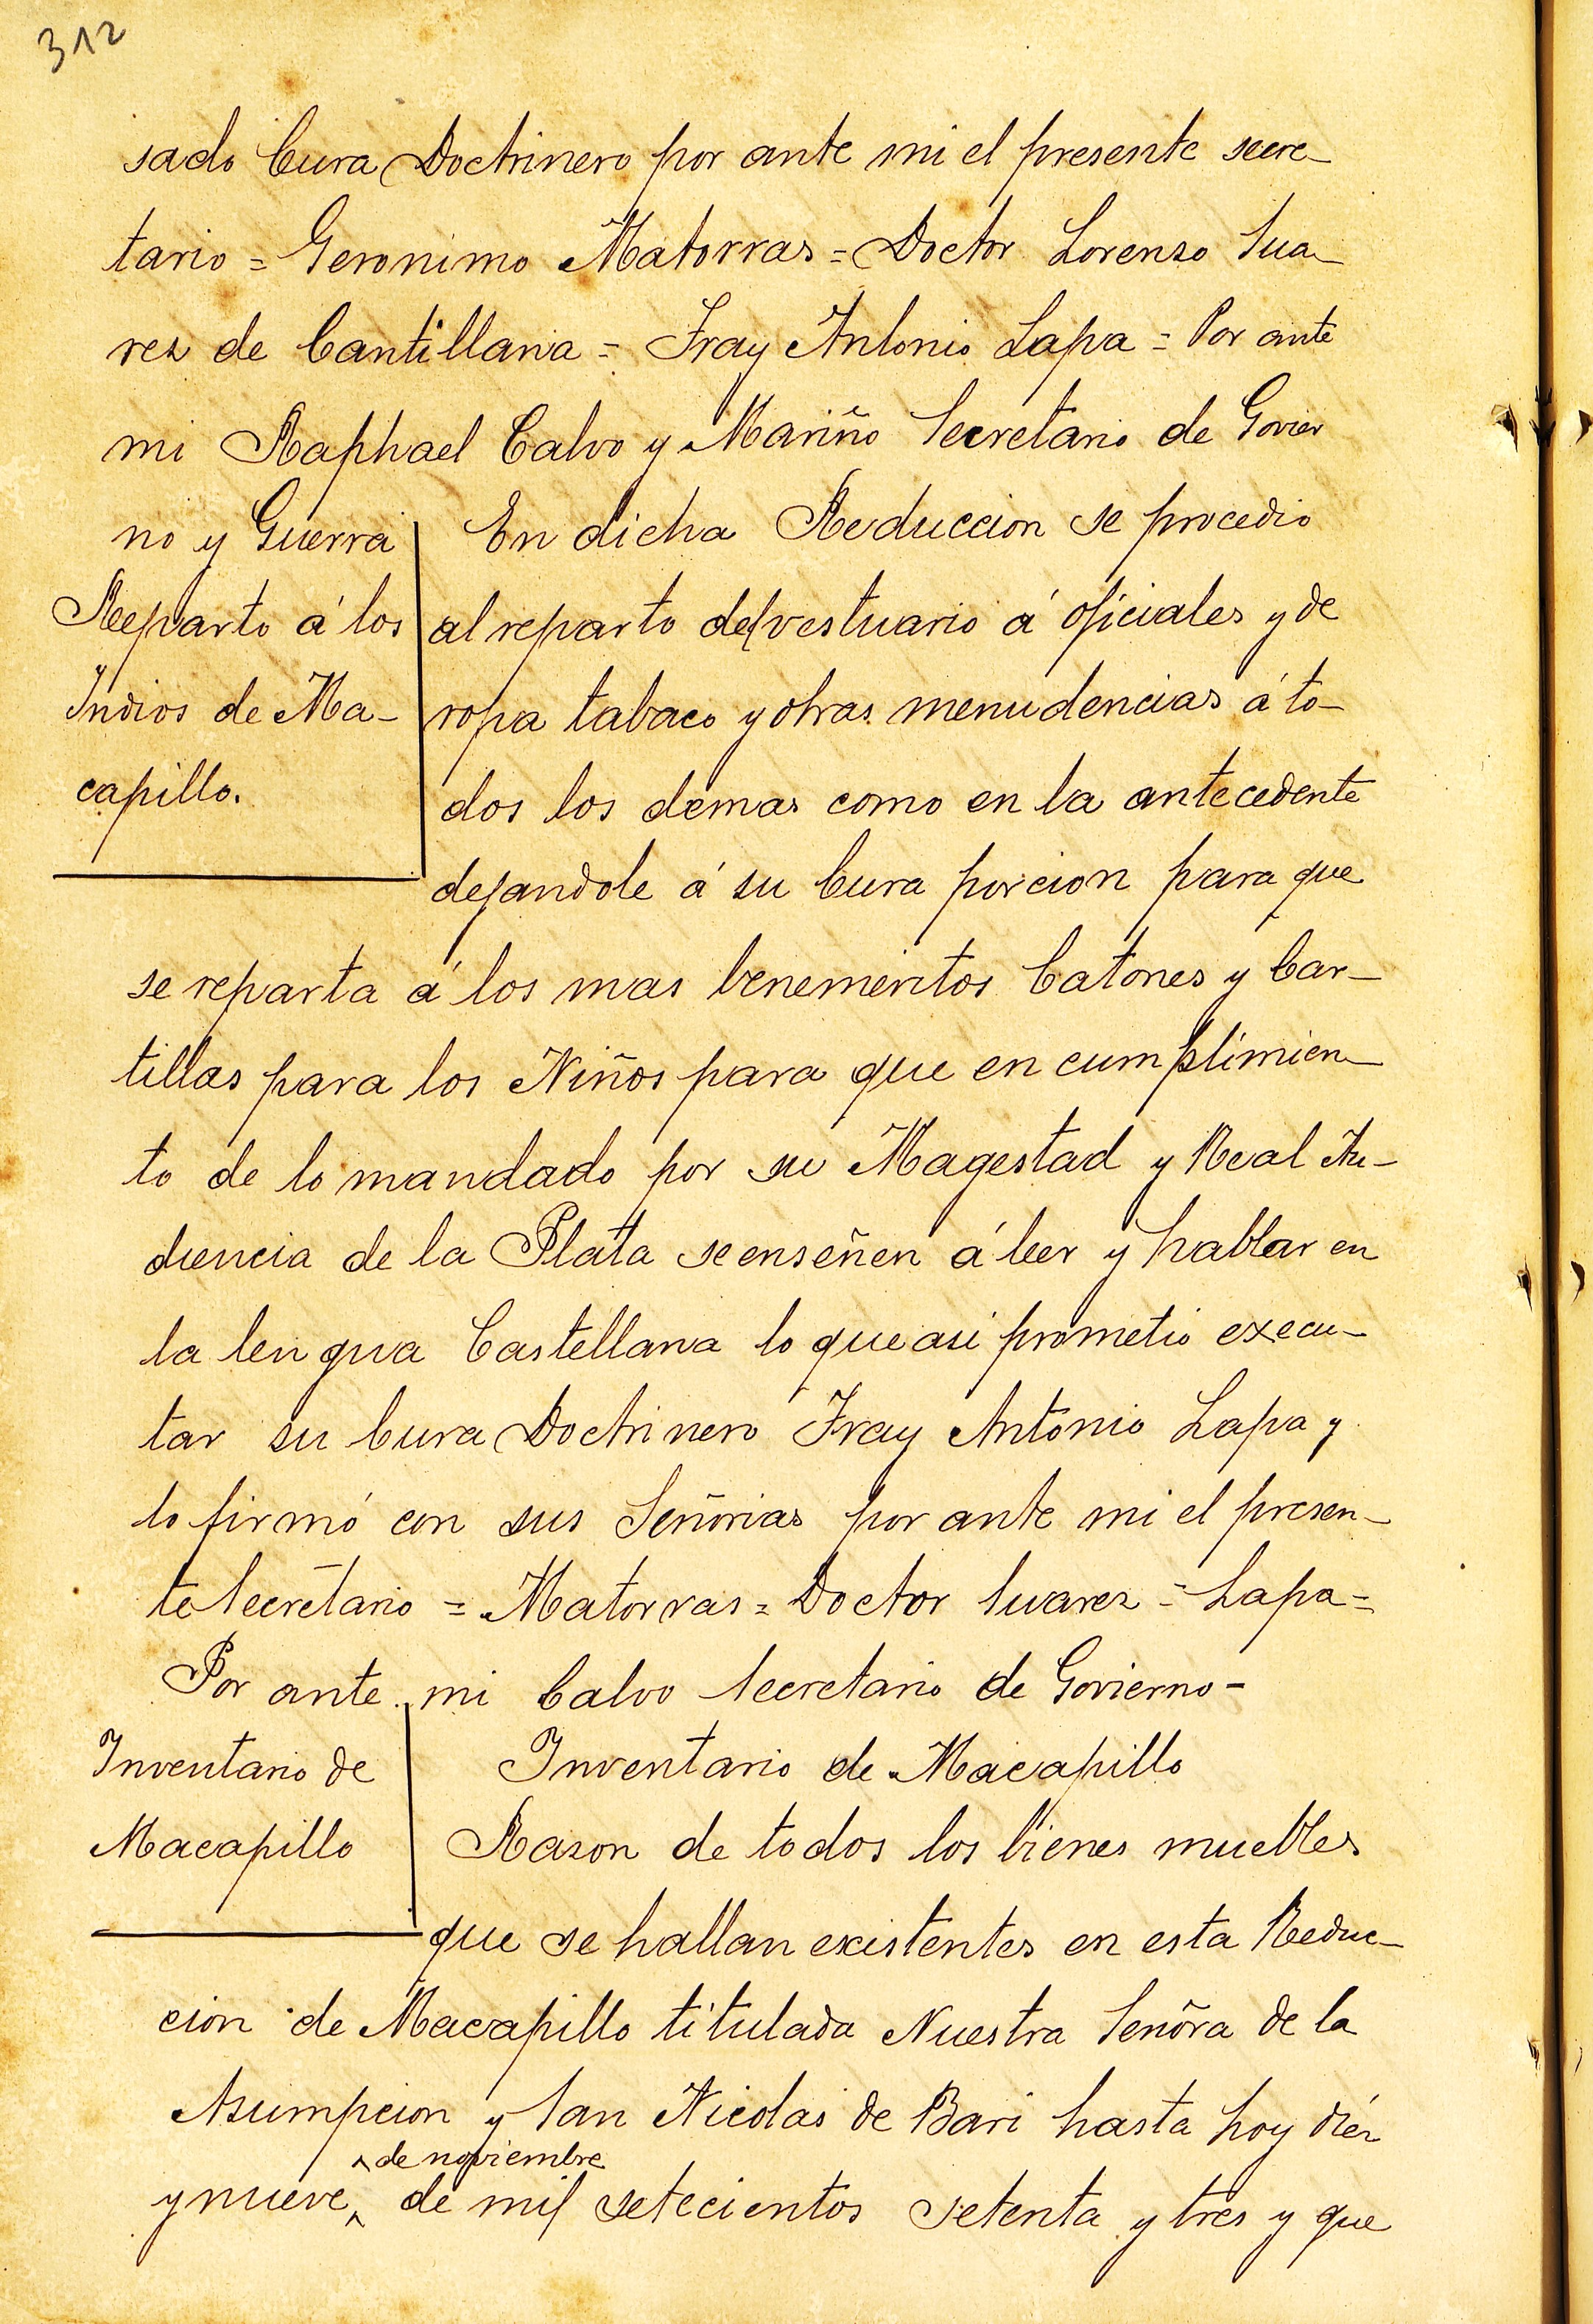 312
sado Cura Doctrinero por ante mi el presente secre-
tario = Geronimo Matorras = Doctor Lorenzo Sua-
rez de Cantillana = Fray Antonio Lapa = Por ante
mi Raphael Calvo y Mariño Secretario de Govier
no y Guerra
Reeparto á los
Indios de Ma-
capillo.
En dicha Reduccion se procedio
al reparto del vestuario á oficiales y de
ropa tabaco y otras menudencias á to-
dos los demas como en la antecedente
dejandole á su Cura porcion para que
se reparta á los mas benemeritos Catones y Car-
tillas para los Niños para que en cumplimien-
to de lo mandado por su Magestad y Real Au-
diencia de la Plata se enseñen á leer y hablar en
la lengua Castellana lo que asi prometio execu-
tar su Cura Doctrinero Fray Antonio Lapa y
lo firmó con sus Señorias por ante mi el presen-
te Secretario = Matorras = Doctor Suarez = Lapa =
Por ante mi Calvo Secretario de Govierno-
Inventario de
Macapillo
Inventario de Macapillo
Rason de todos los bienes muebles
que se hallan existentes en esta Reduc-
cion de Macapillo titulada Nuestra Señora de la
Asumpcion y San Nicolas de Bari hasta hoy diez
^ de noviembre
y nueve ^ de mil setecientos setenta y tres y que